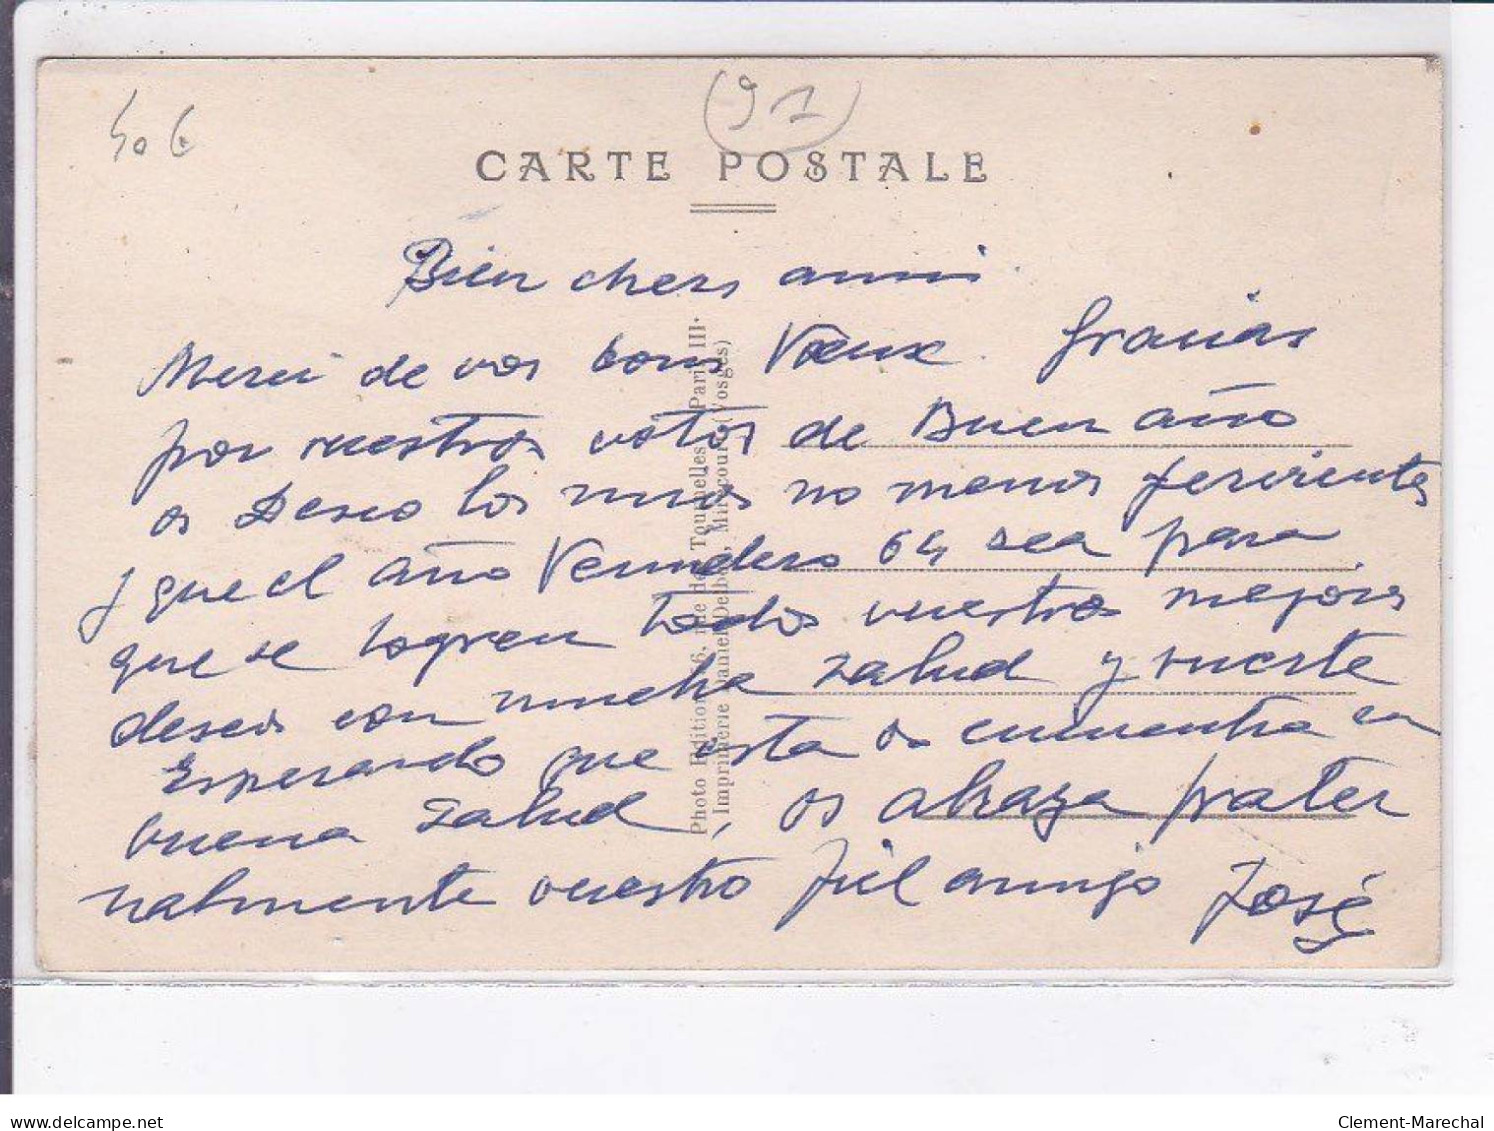 40€
(91)
CARTE POSTALE
Bien chers amis.
Merci de vos bons Vœux. Gracias
por vuestros votos de Buen año
os Deseo los mios no menos fervientes
y que el año Venidero 64, sea para
que se logren todos vuestros mejores
deseos con mucha salud y suerte
Esperando que esta os encuentra en
buena salud, os abraza frater
nalmente vuestro fiel amigo José
Photo Edition 56, rue des Tournelles, Paris III.
Imprimerie Daniel Delboy, Mirecourt (Vosges)
delcampe.net
Clement-Marechal